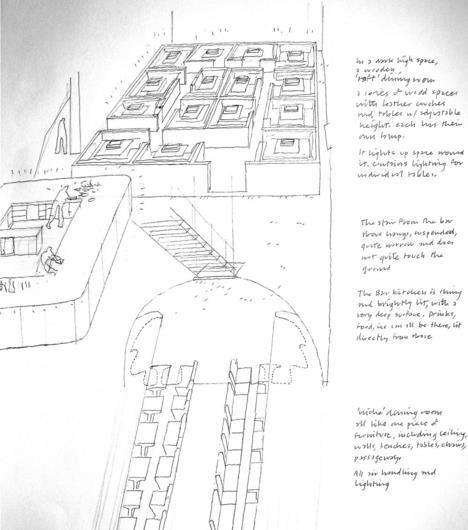 In a dark high space,
a wooden,
'raft' dining room
a series of wood spaces
with leather couches
and tables w/ adjustable
height. Each has their
own lamp.
It lights up space around
it. Contains lighting for
individual tables,
The stair from the bar
above hangs, suspended,
quite narrow and does
not quite touch the
ground
The Bar kitchen is shiny
and brightly lit, with a
very deep surface. Drinks,
food, ice can all be there, lit
directly from above
'niche' dining room
all like one piece of
furniture, including ceiling,
walls, benches, tables, chairs,
passageway.
All air handling and
lighting